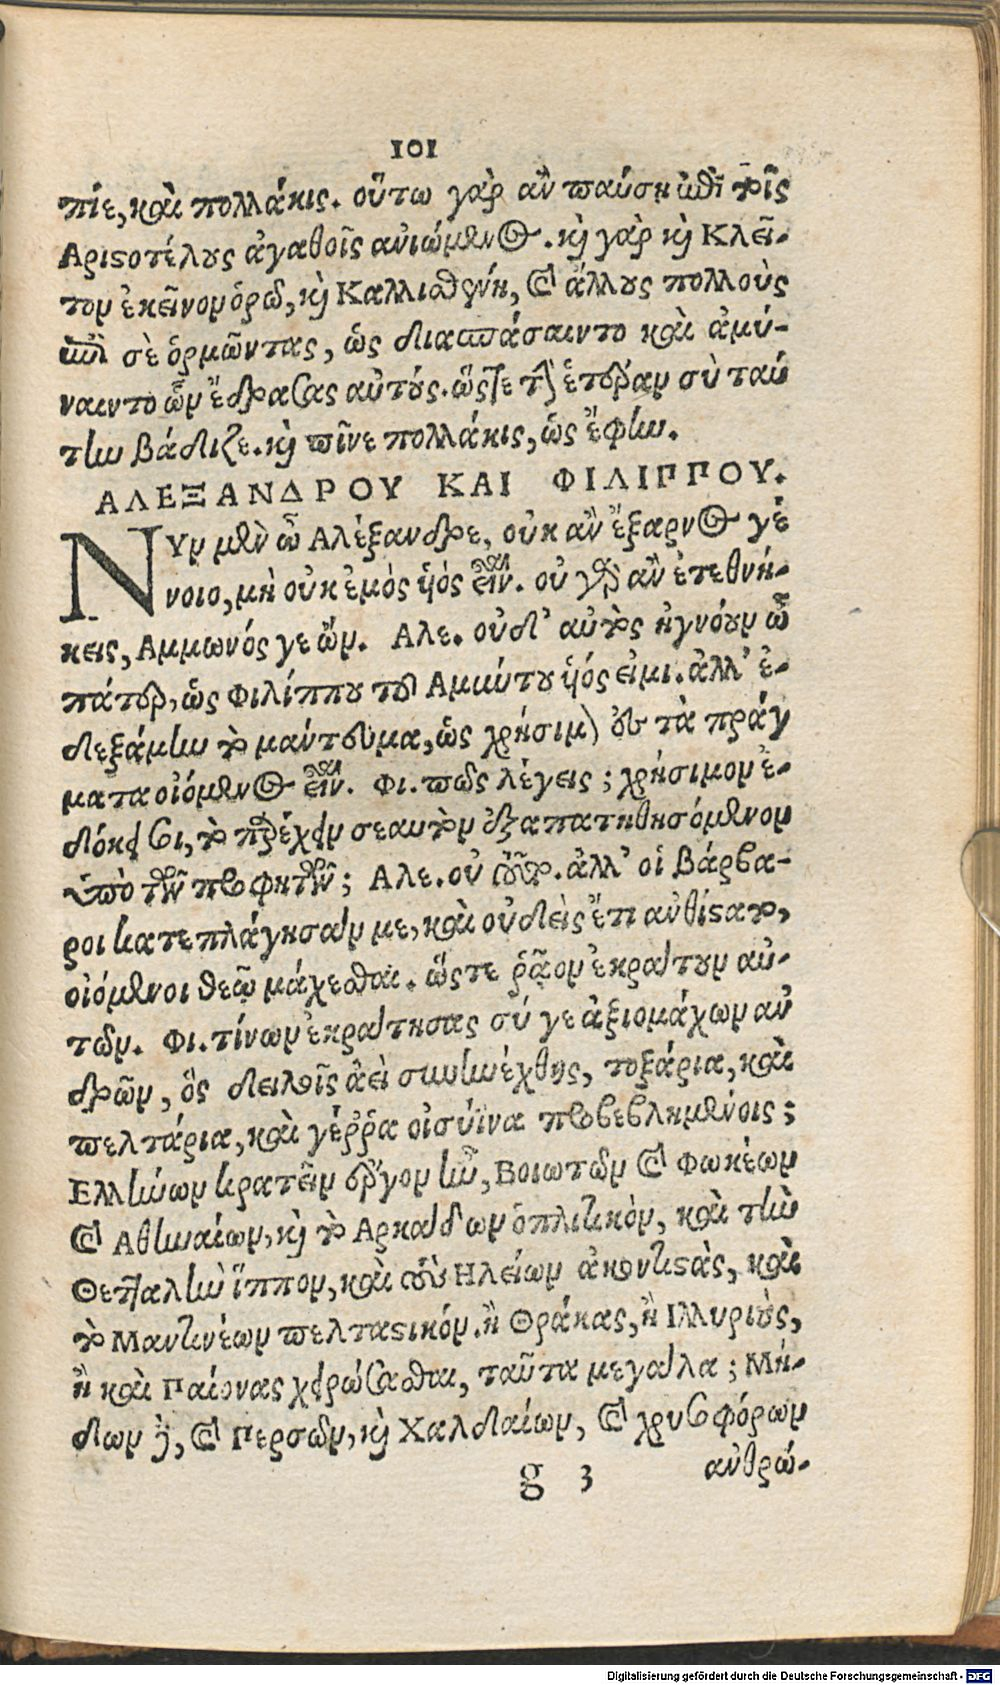 101
πίε, καὶ πολλάκις. οὕτω γὰρ ἂν παύσῃ ἐπὶ τοῖς
Αριστοτέλους ἀγαθοῖς ἀνιώμενος. καὶ γὰρ καὶ Κλεῖ-
τον ἐκεῖνον ὁρῶ, καὶ Καλλισθένη, καὶ ἄλλους πολλοὺς
ἐπὶ σὲ ὁρμῶντας, ὡς διασπάσαιντο καὶ ἀμύ-
ναιντο ὧν ἔδρασας αὐτούς. ὥστε τὴν ἑτέραν σὺ ταύ
την βάδιζε. καὶ πῖνε πολλάκις, ὡς ἔφην.
ΑΛΕΞΑΝΔΡΟΥ ΚΑΙ ΦΙΛΙΠΠΟΥ.
Νῦν μὲν ὦ Αλέξανδρε, οὐκ ἂν ἔξαρνος γέ
νοιο, μὴ οὐκ ἐμὸς ὑὸς εἶναι. οὐ γὰρ ἂν ἐτεθνή-
κεις, Αμμωνός γε ὤν. Αλε. οὐδ' αὐτὸς ἠγνόουν ὦ
πάτερ, ὡς Φιλίππου τοῦ Αμύντου ὑός εἰμι. ἀλλ' ἐ-
δεξάμην τὸ μάντευμα, ὡς χρήσιμον ἐς τὰ πράγ
ματα οἰόμενος εἶναι. Φι. πῶς λέγεις; χρήσιμον ἐ-
δόκει σοι, τὸ παρέχειν σεαυτὸν ἐξαπατηθησόμενον
ὑπὸ τῶν προφητῶν; Αλε. οὐ τοῦτο. ἀλλ' οἱ βάρβα-
ροι κατεπλάγησαν με, καὶ οὐδεὶς ἔτι ἀνθίστατο,
οἰόμενοι θεῷ μάχεσθαι. ὥστε ῥᾷον ἐκράτουν αὐ-
τῶν. Φι. τίνων ἐκράτησας σύ γε ἀξιομάχων ἀν
δρῶν, ὃς δειλοῖς ἀεὶ συνηνέχθης, τοξάρια, καὶ
πελτάρια, καὶ γέρρα οἰσύϊνα προβεβλημένοις;
Ελλήνων κρατεῖν ἔργον ἦν, Βοιωτῶν καὶ Φωκέων
καὶ Αθηναίων, καὶ τὸ Αρκάδων ὁπλιτικὸν, καὶ τὴν
Θετταλὴν ἵππον, καὶ τοὺς Ηλείων ἀκοντιστὰς, καὶ
τὸ Μαντινέων πελταστικόν. ἢ Θρᾴκας, ἢ Ιλλυριοὺς,
ἢ καὶ Παίονας χειρώσασθαι, ταῦτα μεγάλα; Μή-
δων δὲ, καὶ Περσῶν, καὶ Χαλδαίων, καὶ χρυσοφόρων
g 3 ἀνθρώ-
Digitalisierung gefördert durch die Deutsche Forschungsgemeinschaft - DFG